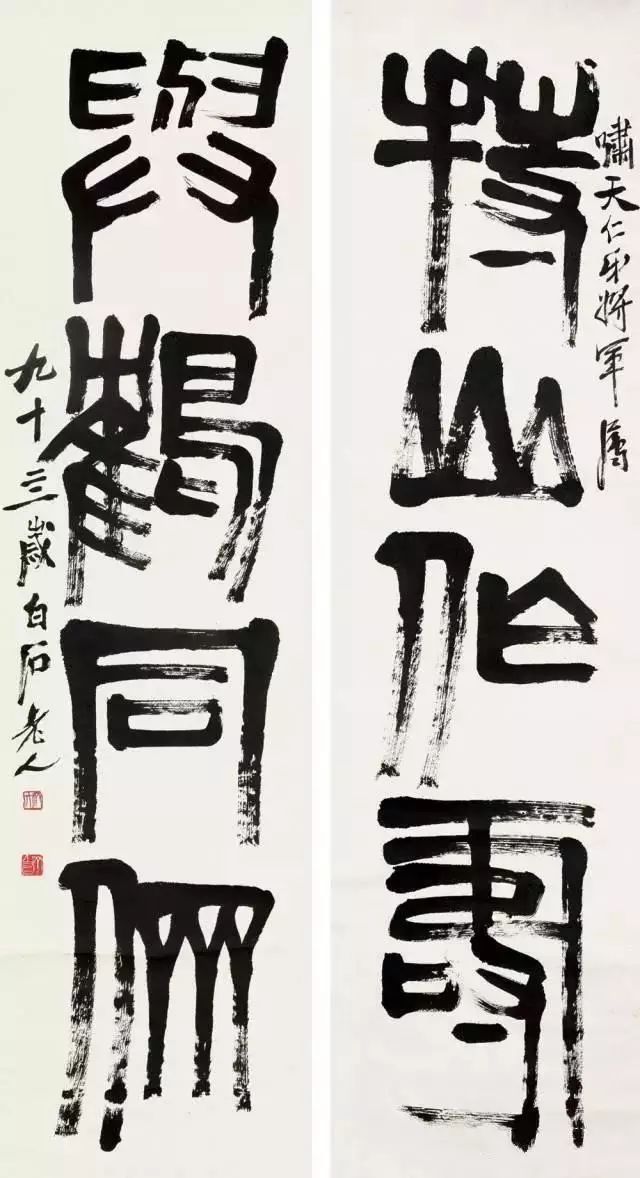 持山作壽
嘯天仁弟將軍屬
與鶴同倆
九十三歲白石老人